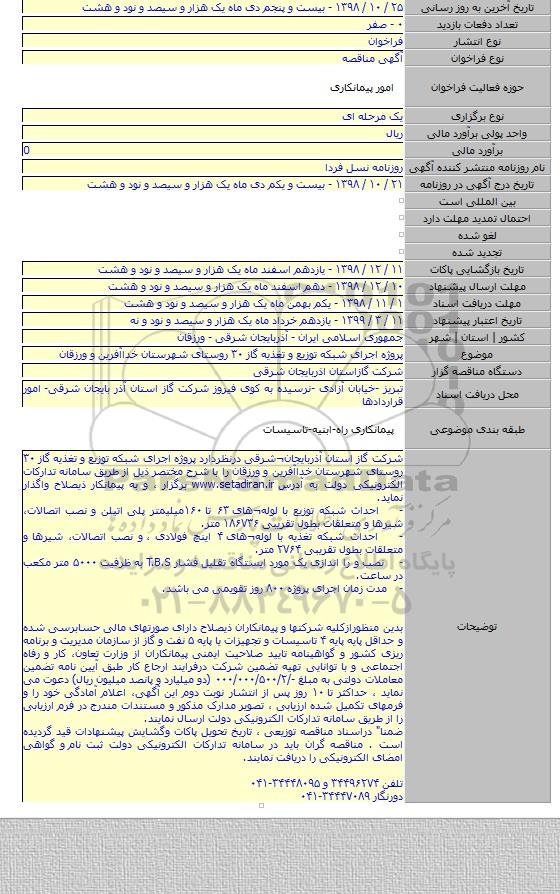 تاریخ آخرین به روز رسانی
۲۵ / ۱۰ / ۱۳۹۸ - بیست و پنجم دی ماه یک هزار و سیصد و نود و هشت
تعداد دفعات بازدید
۰ - صفر
نوع انتشار
فراخوان
نوع فراخوان
آگهی مناقصه
حوزه فعالیت فراخوان
امور پیمانکاری
نوع برگزاری
یک مرحله ای
واحد پولی برآورد مالی
ریال
برآورد مالی
0
نام روزنامه منتشر کننده آگهی
روزنامه نسل فردا
تاریخ درج آگهی در روزنامه
۲۱ / ۱۰ / ۱۳۹۸ - بیست و یکم دی ماه یک هزار و سیصد و نود و هشت
بین المللی است
احتمال تمدید مهلت دارد
لغو شده
تجدید شده
تاریخ بازگشایی پاکات
۱۱ / ۱۲ / ۱۳۹۸ - یازدهم اسفند ماه یک هزار و سیصد و نود و هشت
مهلت ارسال پیشنهاد
۱۰ / ۱۲ / ۱۳۹۸ - دهم اسفند ماه یک هزار و سیصد و نود و هشت
مهلت دریافت اسناد
۱ / ۱۱ / ۱۳۹۸ - یکم بهمن ماه یک هزار و سیصد و نود و هشت
تاریخ اعتبار پیشنهاد
۱۱ / ۳ / ۱۳۹۹ - یازدهم خرداد ماه یک هزار و سیصد و نود و نه
کشور | استان | شهر
جمهوری اسلامی ایران - آذربایجان شرقی - ورزقان
موضوع
پروژه اجرای شبکه توزیع و تغذیه گاز ۳۰ روستای شهرستان خداآفرین و ورزقان
دستگاه مناقصه گزار
شرکت گازاستان اذربایجان شرقی
محل دریافت اسناد
تبریز -خیابان آزادی -نرسیده به کوی فیروز شرکت گاز استان آذر بایجان شرقی- امور
قراردادها
طبقه بندی موضوعی
پیمانکاری راه-ابنیه-تاسیسات
توضیحات
شرکت گاز استان آذربایجان¬شرقی درنظردارد پروژه اجرای شبکه توزیع و تغذیه گاز ۳۰
روستای شهرستان خداآفرین و ورزقان را با شرح مختصر ذیل از طریق سامانه تدارکات
الکترونیکی دولت به آدرس www.setadiran.ir برگزار ، و به پیمانکار ذیصلاح واگذار
نماید.
- احداث شبکه توزیع با لوله¬های ۶۳ تا ۱۶۰میلیمتر پلی اتیلن و نصب اتصالات،
شیرها و متعلقات بطول تقریبی ۱۸۶۷۳۶ متر.
- احداث شبکه تغذیه با لوله¬های ۴ اینچ فولادی ، و نصب اتصالات، شیرها و
متعلقات بطول تقریبی ۲۷۶۴ متر.
- نصب و را اندازی یک مورد ایستگاه تقلیل فشار T.B.S به ظرفیت ۵۰۰۰ متر مکعب
در ساعت.
- مدت زمان اجرای پروژه ۸۰۰ روز تقویمی می باشد.
بدین منظورازکلیه شرکتها و پیمانکاران ذیصلاح دارای صورتهای مالی حسابرسی شده
و حداقل پایه پایه ۴ تاسیسات و تجهیزات یا پایه ۵ نفت و گاز از سازمان مدیریت و برنامه
ریزی کشور و گواهینامه تایید صلاحیت ایمنی پیمانکاران از وزارت تعاون، کار و رفاه
اجتماعی و با توانایی تهیه تضمین شرکت درفرایند ارجاع کار طبق آیین نامه تضمین
معاملات دولتی به مبلغ -/۲/۵۰۰/۰۰۰/۰۰۰ (دو میلیارد و پانصد میلیون ریال) دعوت می
نماید ، حداکثر تا ۱۰ روز پس از انتشار نوبت دوم این آگهی، اعلام آمادگی خود را و
فرمهای تکمیل شده ارزیابی ، تصویر مدارک مذکور و مستندات مندرج در فرم ارزیابی
را از طریق سامانه تدارکات الکترونیکی دولت ارسال نمایند.
ضمنا" دراسناد مناقصه توزیعی ، تاریخ تحویل پاکات وگشایش پیشنهادات قید گردیده
است . مناقصه گران باید در سامانه تدارکات الکترونیکی دولت ثبت نام و گواهی
امضای الکترونیکی را دریافت نمایند.
تلفن ۳۴۴۹۶۲۷۴ و ۳۴۴۴۸۰۹۵-۰۴۱
دورنگار ۳۴۴۴۷۰۸۹-۰۴۱
پایگاه اطلاع رسانی مناقصه و مزایده
۰۲۱-۸۸۳۴۹۶۷۰-۵